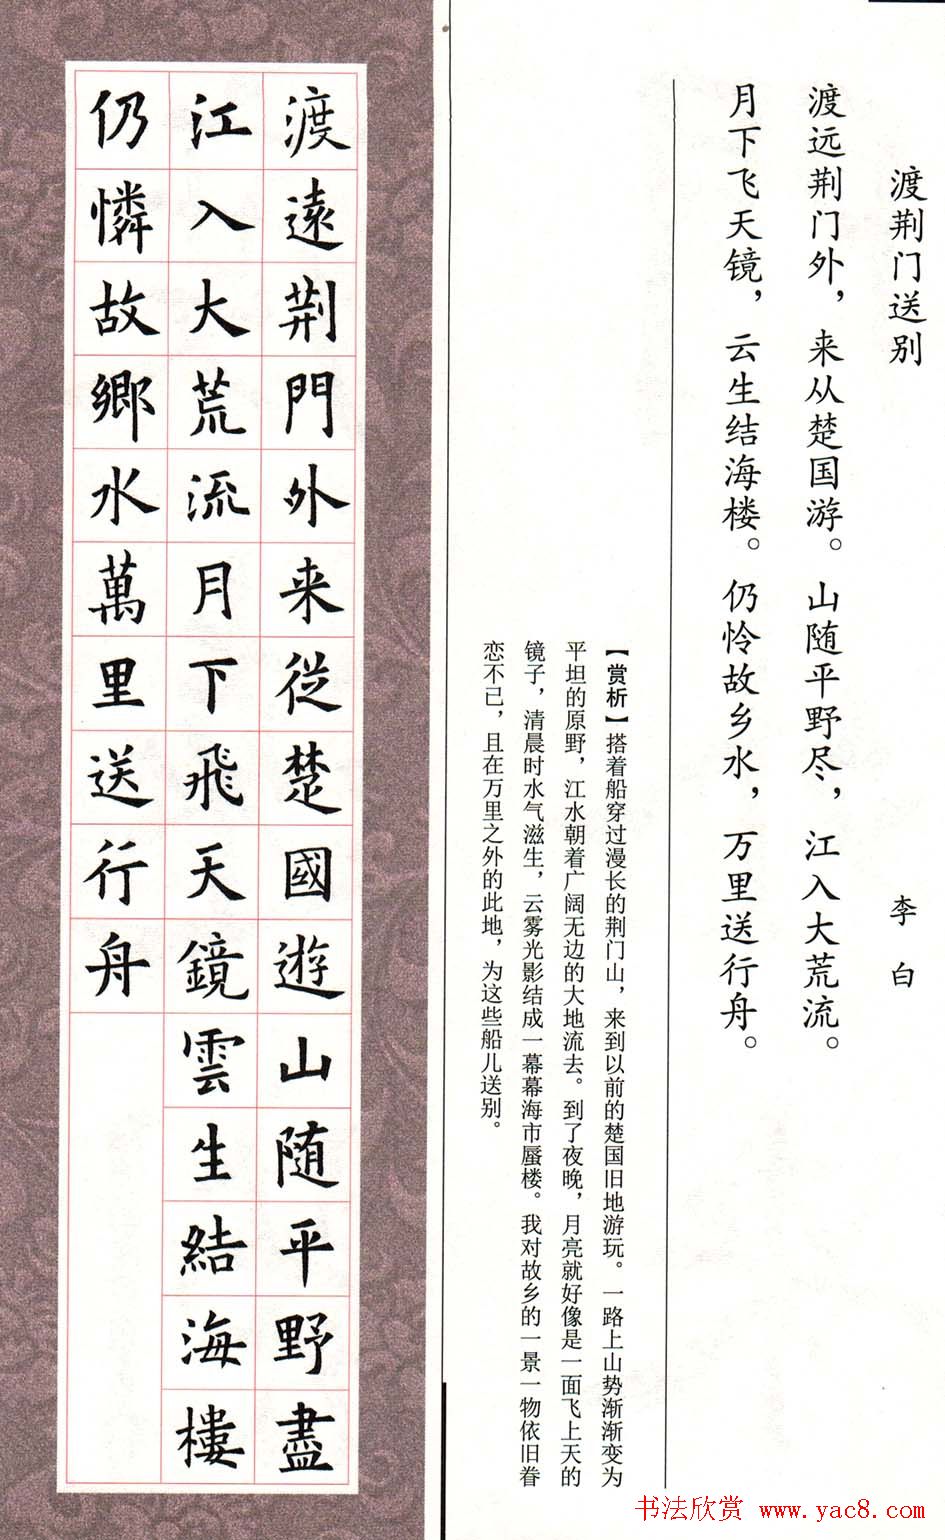 渡荆门送别
李白
渡远荆门外，来从楚国游。山随平野尽，江入大荒流。
月下飞天镜，云生结海楼。仍怜故乡水，万里送行舟。
【赏析】搭着船穿过漫长的荆门山，来到以前的楚国旧地游玩。一路上山势渐渐变为
平坦的原野，江水朝着广阔无边的大地流去。到了夜晚，月亮就好像是一面飞上天的
镜子，清晨时水气滋生，云雾光影结成一幕幕海市蜃楼。我对故乡的一景一物依旧眷
恋不已，且在万里之外的此地，为这些船儿送别。
渡遠荆門外来從楚國遊山随平野盡
江入大荒流月下飛天鏡雲生結海樓
仍憐故鄉水萬里送行舟
书法欣赏 www.yac8.com